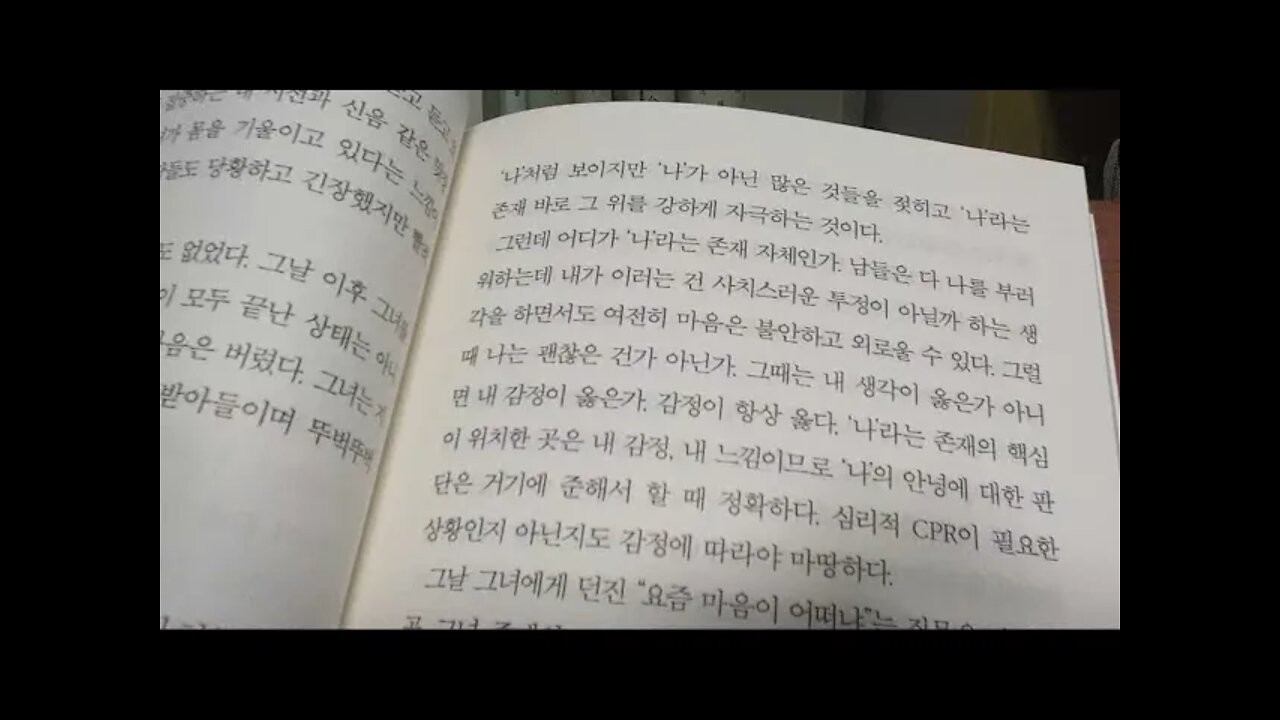 몸을 기울이고 있다는
당황하고 긴장했지만
없었다. 그날 이후 그녀를
모두 끝난 상태는 아니
버렸다. 그녀는
받아들이며 뚜벅뚜벅
'나'처럼 보이지만 '나'가 아닌 많은 것들을 젖히고 '나'라는
존재 바로 그 위를 강하게 자극하는 것이다.
그런데 어디가 '나'라는 존재 자체인가. 남들은 다 나를 부러
워하는데 내가 이러는 건 사치스러운 투정이 아닐까 하는 생
각을 하면서도 여전히 마음은 불안하고 외로울 수 있다. 그럴
때 나는 괜찮은 건가 아닌가. 그때는 내 생각이 옳은가 아니
면 내 감정이 옳은가. 감정이 항상 옳다. '나'라는 존재의 핵심
이 위치한 곳은 내 감정, 내 느낌이므로 '나'의 안녕에 대한 판
단은 거기에 준해서 할 때 정확하다. 심리적 CPR이 필요한
상황인지 아닌지도 감정에 따라야 마땅하다.
그날 그녀에게 던진 "요즘 마음이 어떠냐"는